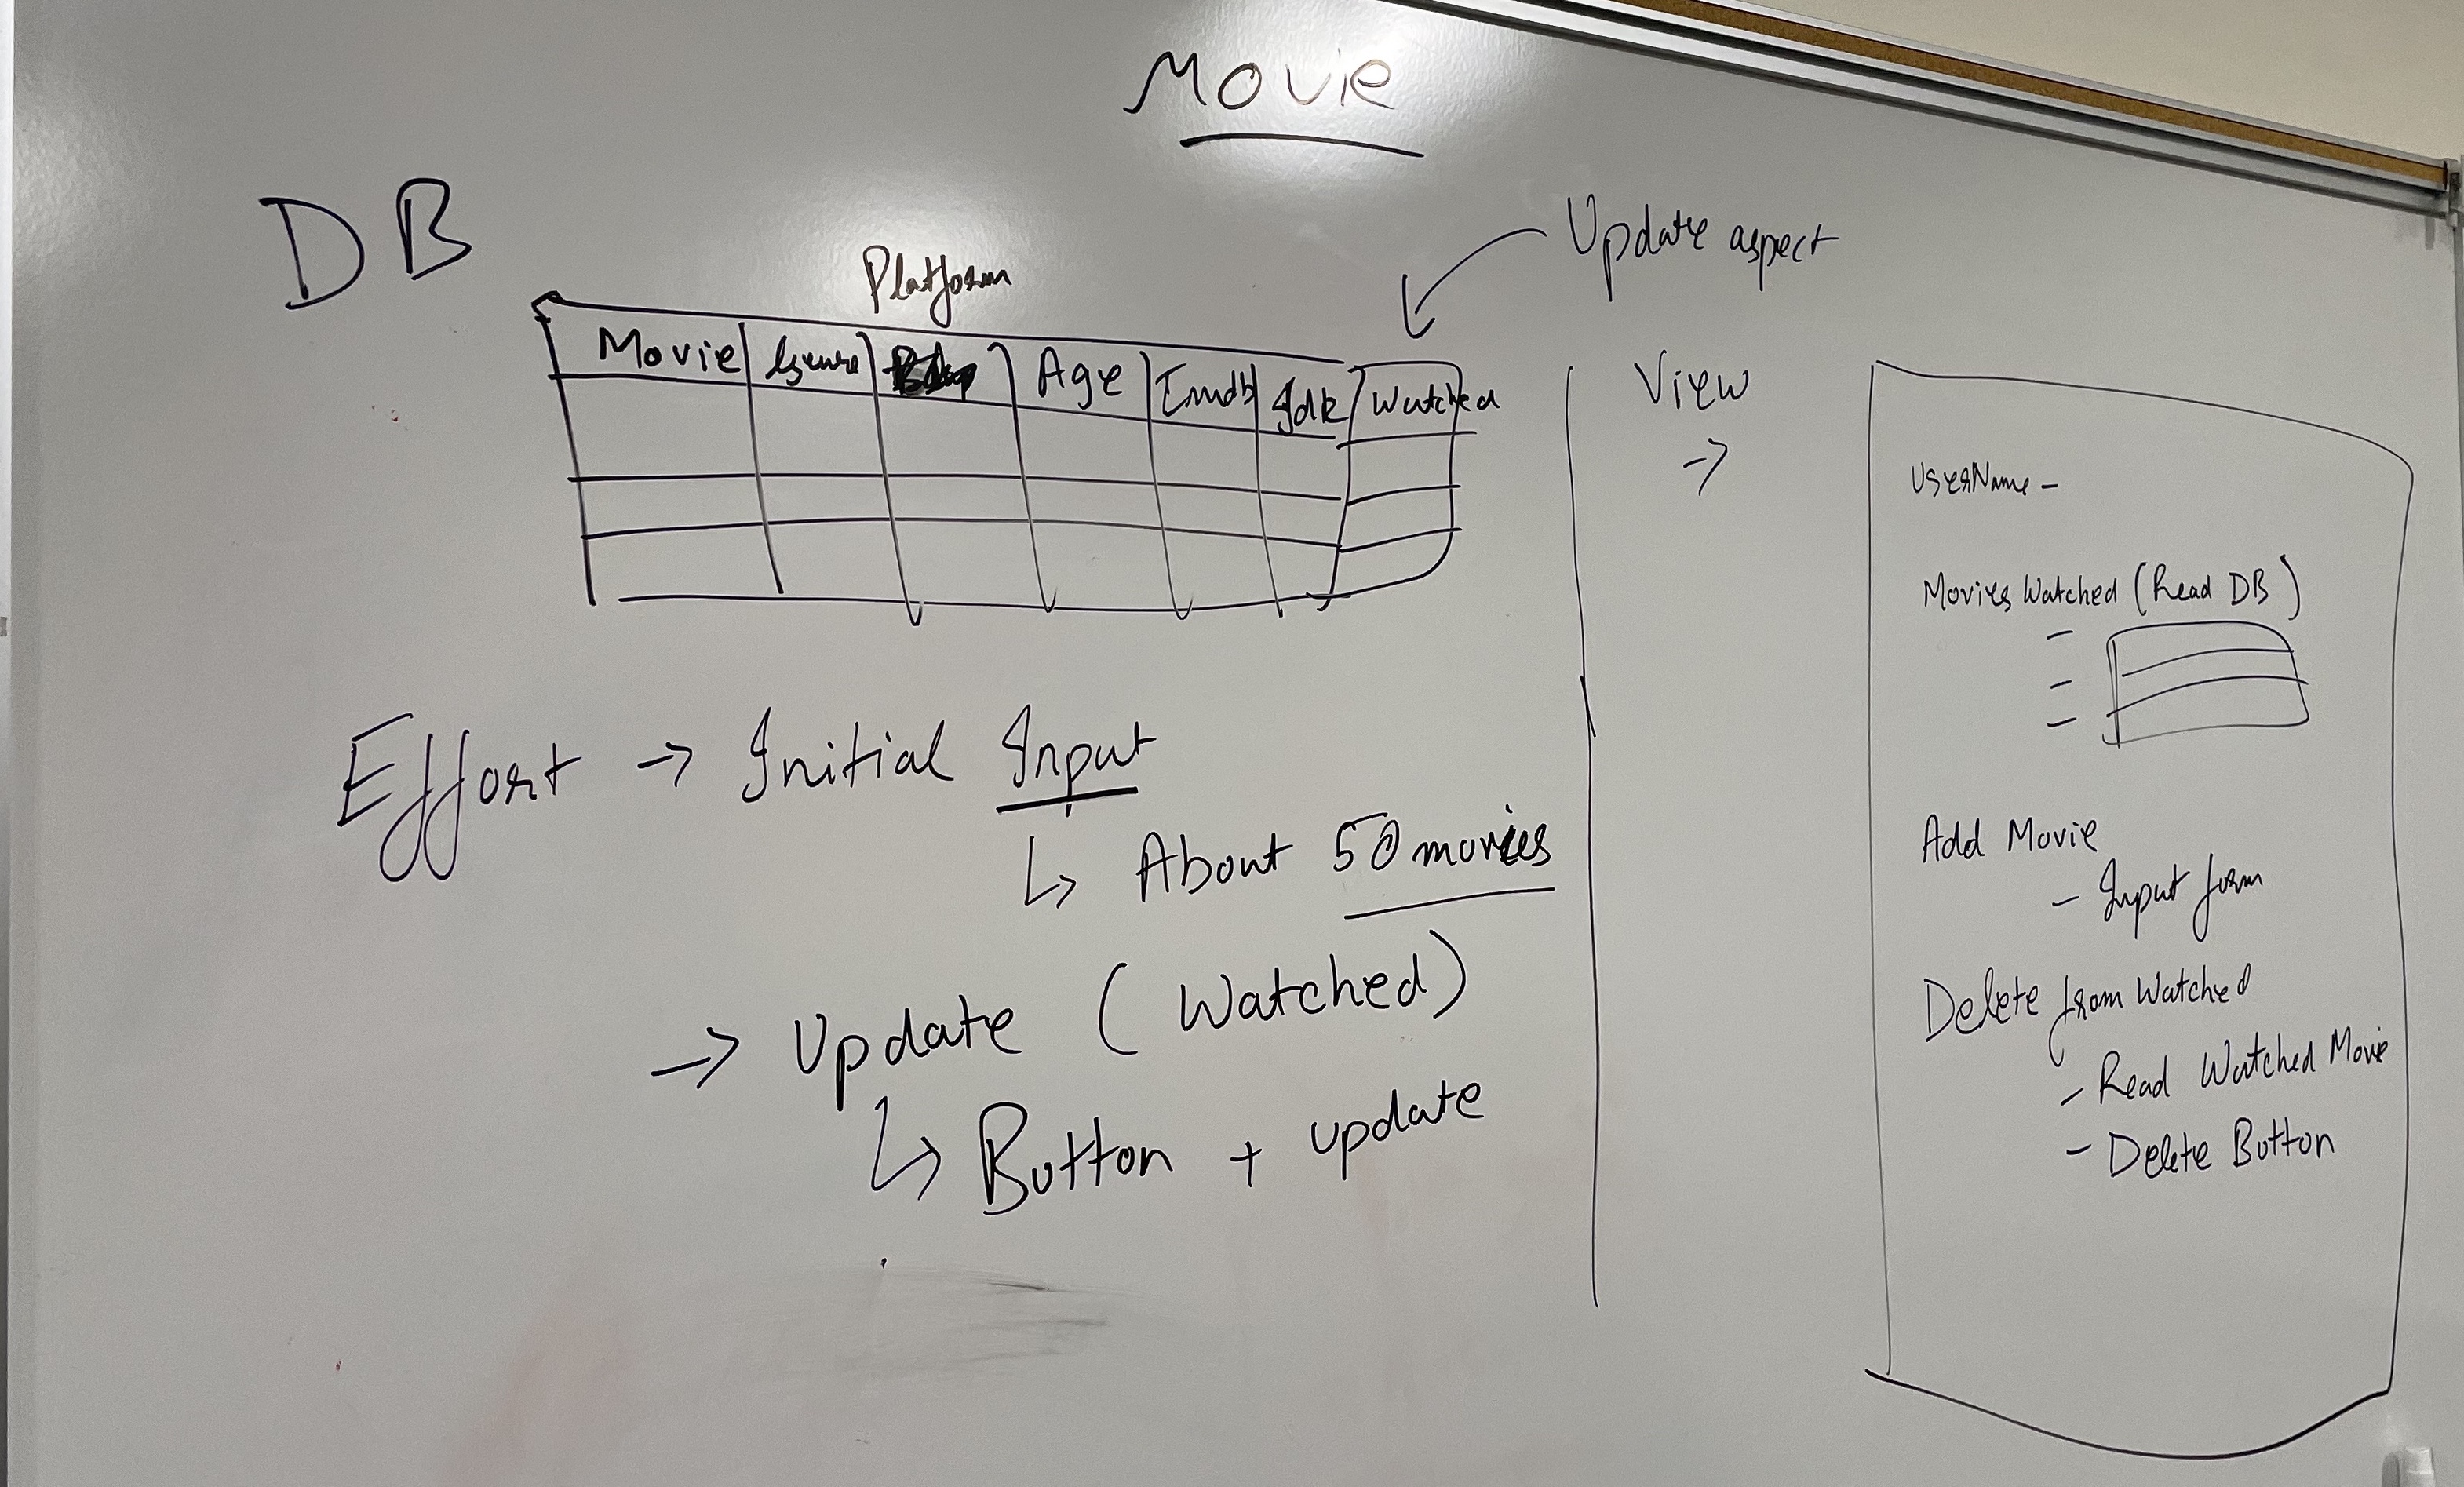 Movie
DB
Platform
Update aspect
Movie Genre Age Imdb Watched
Effort → Initial Input
↳ About 50 movies
→ Update (Watched)
↳ Button + update
View
→
UserName -
Movies Watched (Read DB)
-
-
-
Add Movie
- Input form
Delete from Watched
- Read Watched Movie
- Delete Button